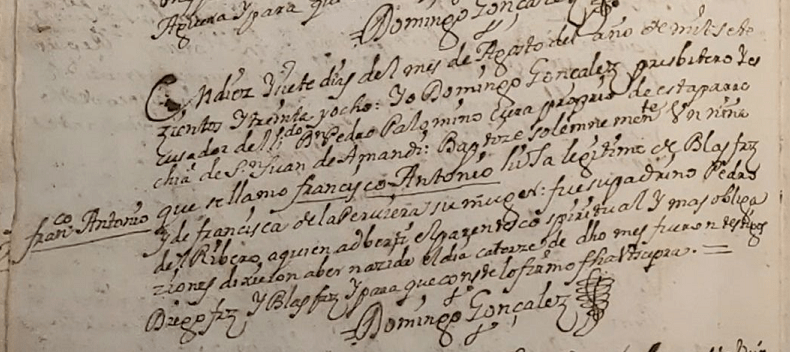 Aguera Y para que
Domingo Gonçalez
En diez Y siete dias del mes de Agosto del año de mil sete
zientos Y treinta y ocho: Yo Domingo Gonçalez presbitero Y es
cusador del Lido Dn Pedro Palomino Cura proprio de esta parro
chia de Sn Juan de Amandi: Baptize solemnemente Un niño
que se llamo francisco Antonio hijo legitimo de Blas frz
Y de francisca de la Peruiera su muger: fue su padrino Pedro
del Ribero, a quien adberti el parentesco spiritual Y mas obliga
ziones dixeron aber nazido el dia catorze de dho mes fueron testigos
Diego frz Y Blas frz Y para que conste lo firmo fha Vt supra. =
Domingo Gonçalez
franco Antonio